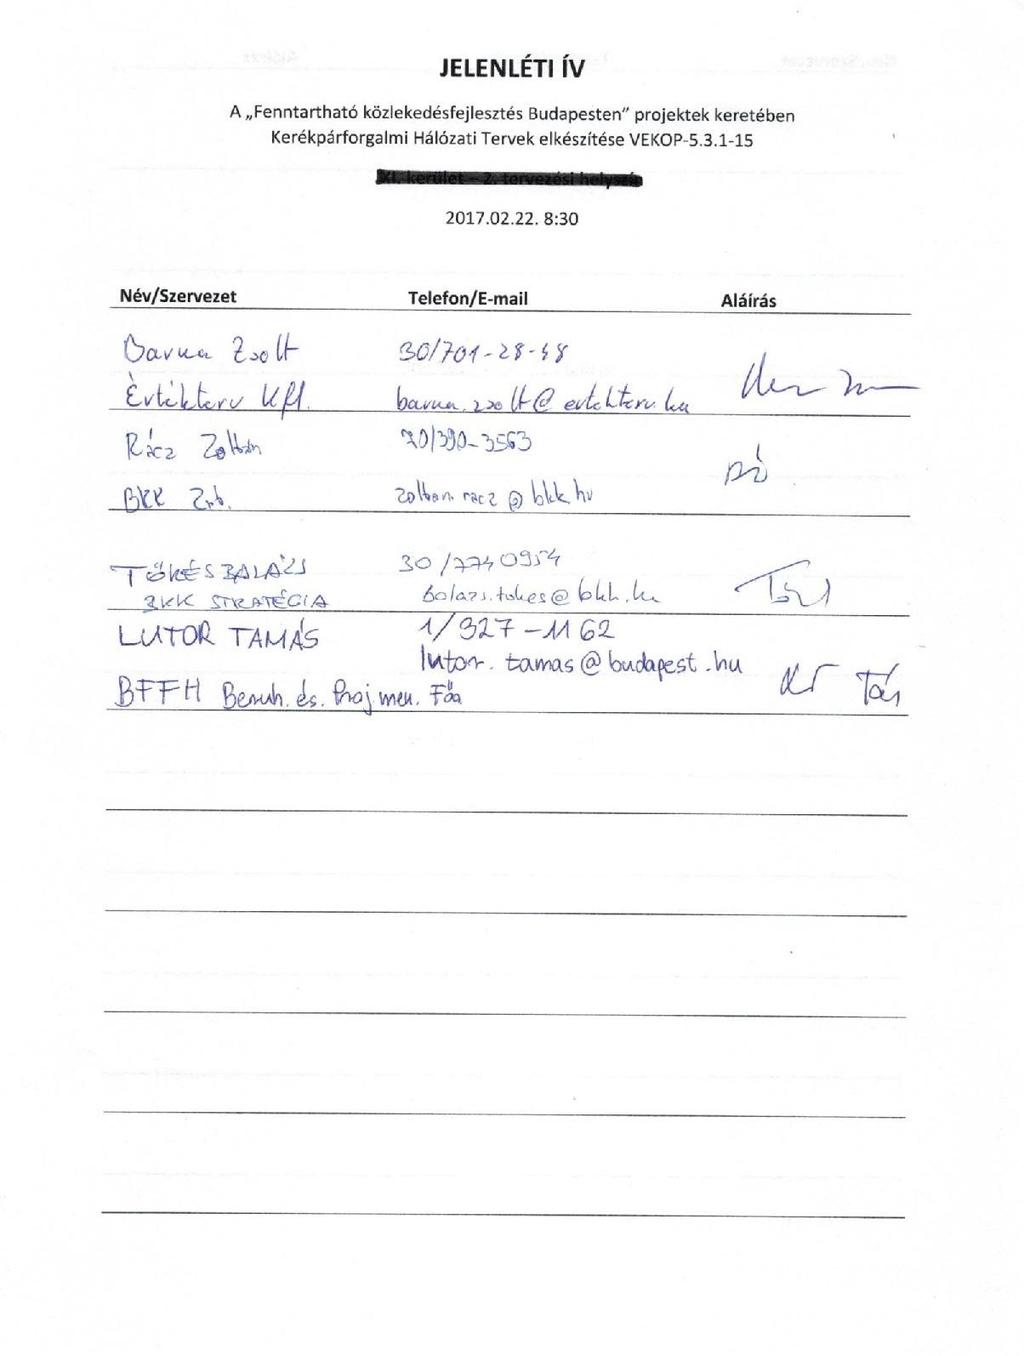 JELENLÉTI ÍV
A „Fenntartható közlekedésfejlesztés Budapesten” projektek keretében
Kerékpárforgalmi Hálózati Tervek elkészítése VEKOP-5.3.1-15
XI. kerület – 2. tervezési helyszín
2017.02.22. 8:30
Név/Szervezet Telefon/E-mail Aláírás
Barna Zsolt 30/701-28-48
Értékterv Kft. barna.zsolt@ertekterv.hu
Rácz Zoltán 70/390-3563
BKK Zrt. zoltan.racz@bkk.hu
TŐKÉS BALÁZS 30/7740954
BKK STRATÉGIA balazs.tokes@bkk.hu
LUTOR TAMÁS 1/327-1162
lutor.tamas@budapest.hu
BFFH Beruh. és. Proj men. Főo